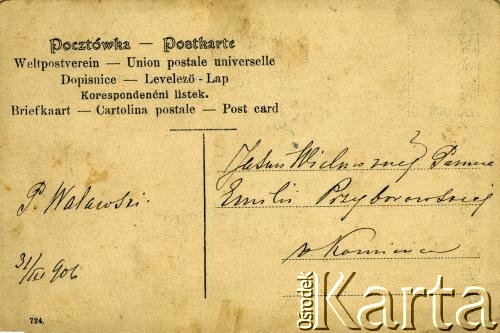 Pocztówka — Postkarte
Weltpostverein — Union postale universelle
Dopisnice — Levelező - Lap
Korespondenční listek.
Briefkaart — Cartolina postale — Post card
Jaśnie Wielmożnej Pannie
P. Walawski.
Emilii Przyborowskiej
w
31/ 906
724.
Ośrodek
Karta